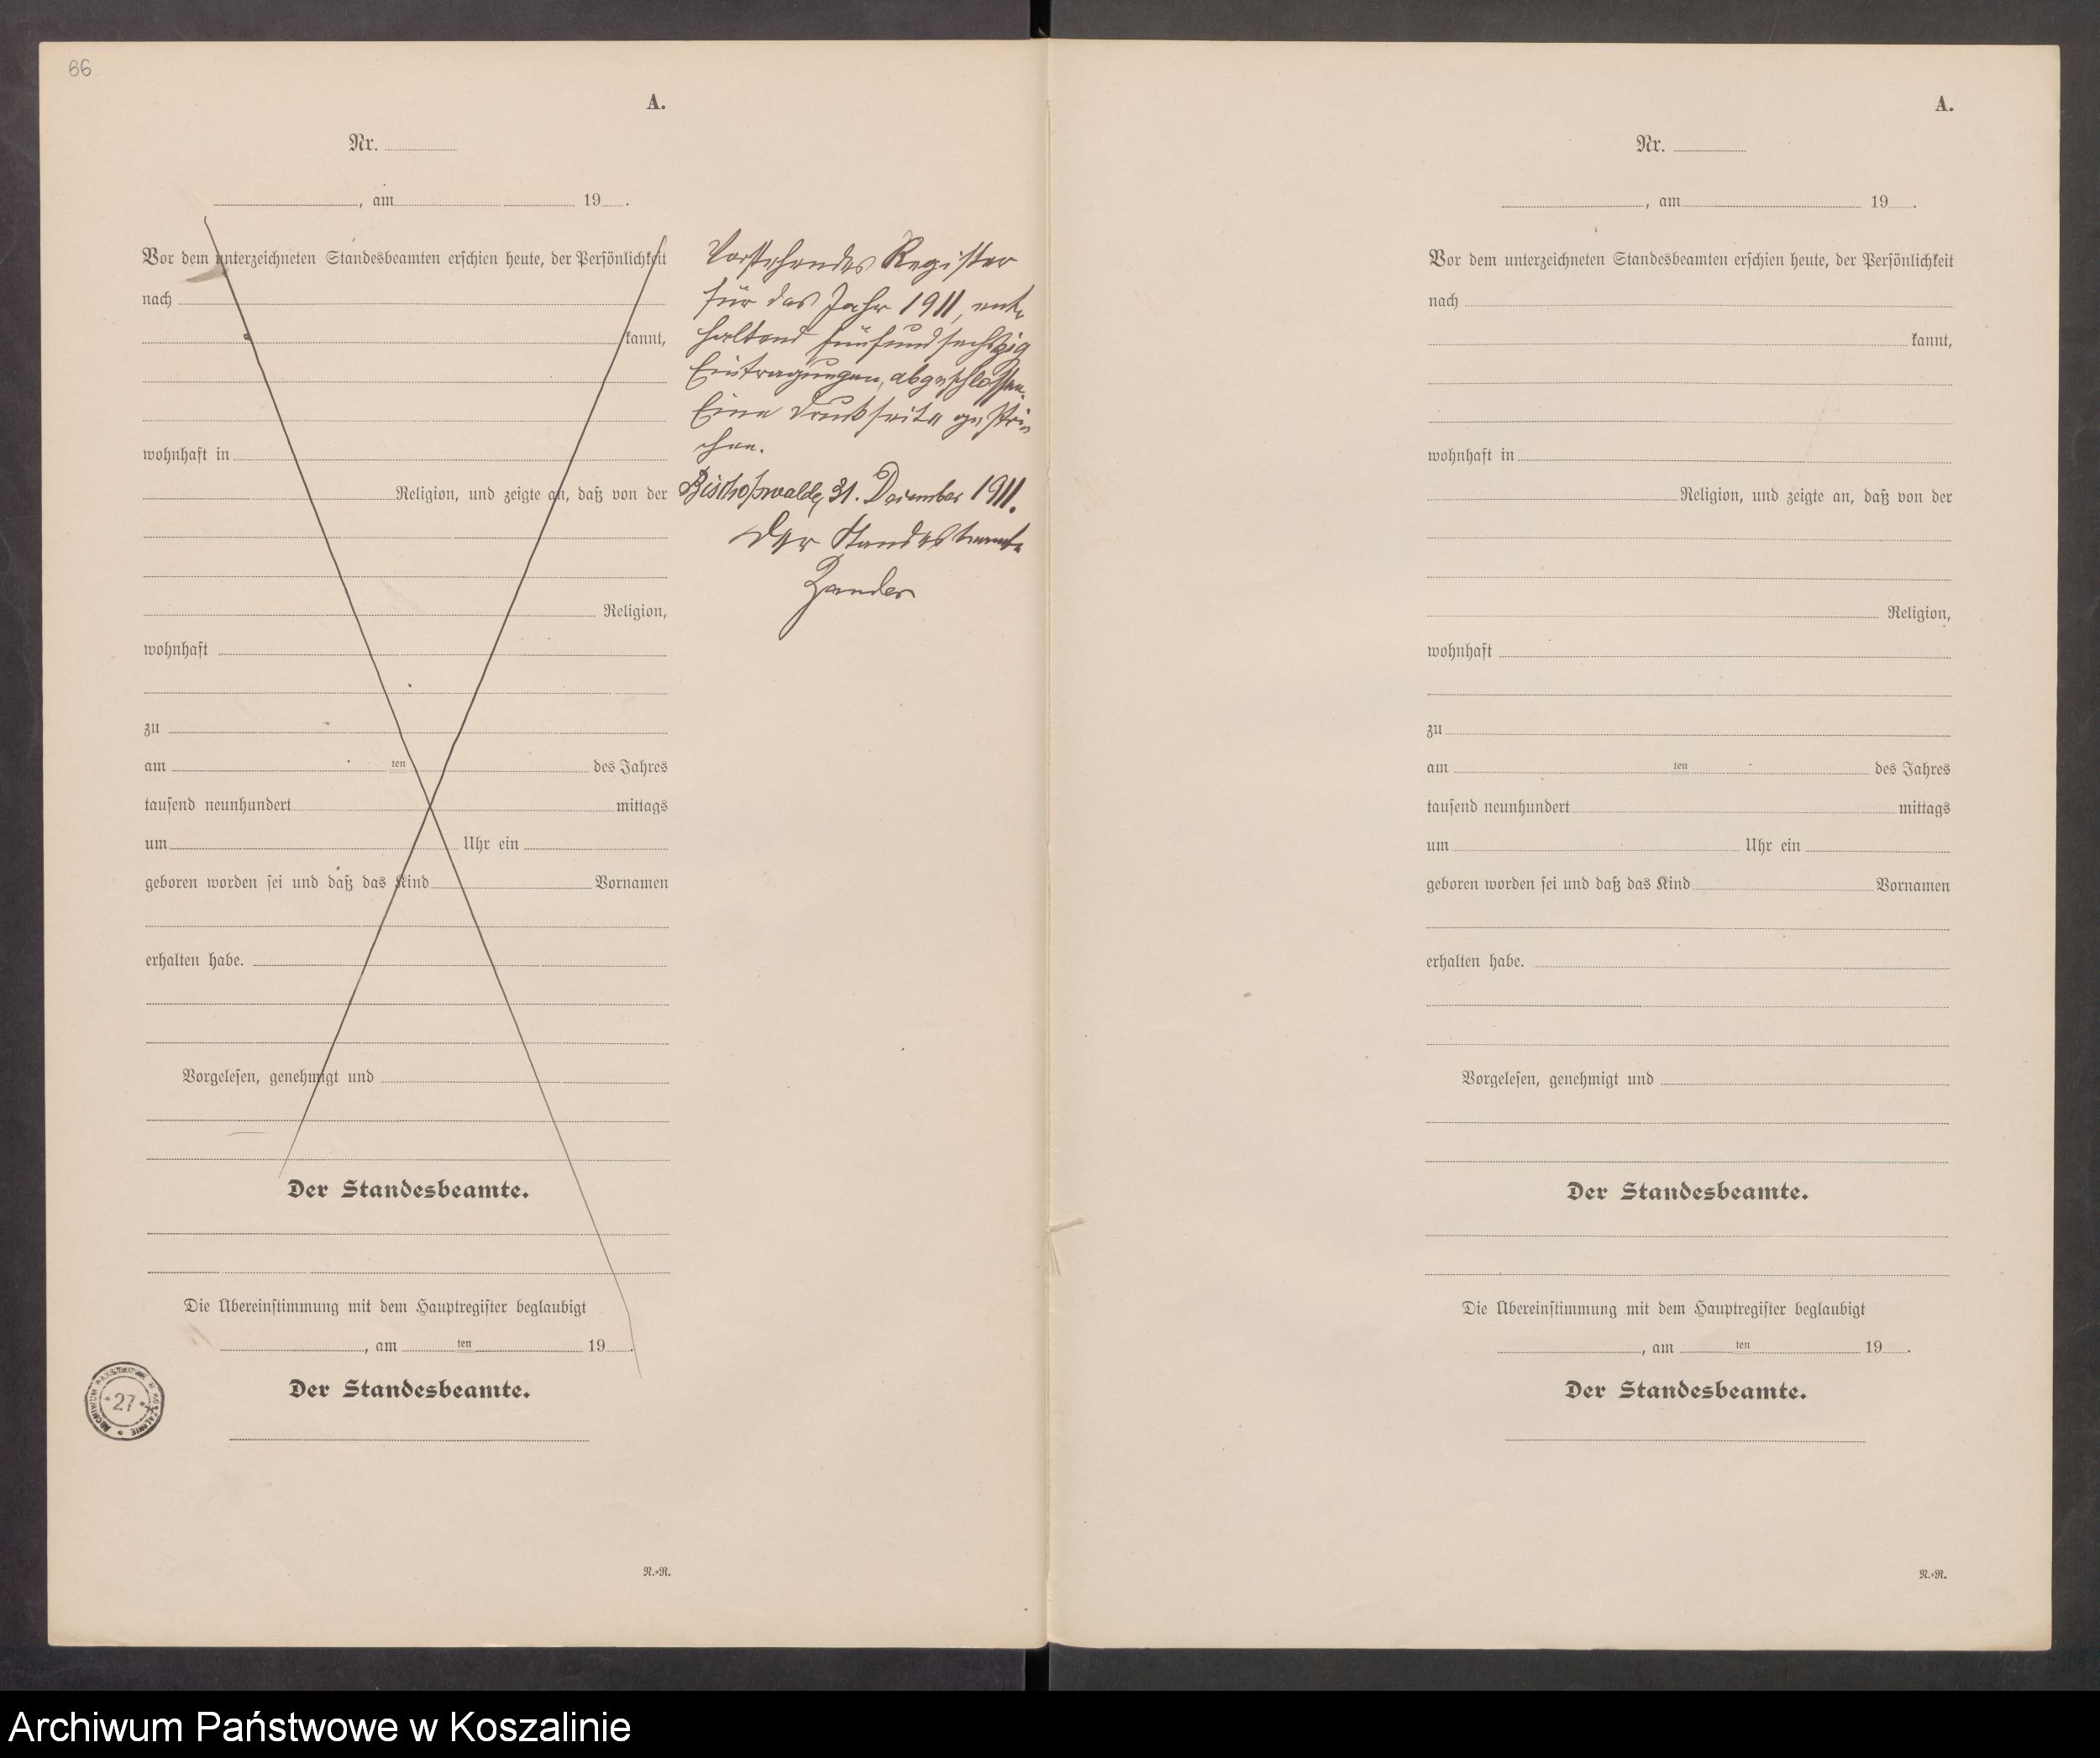 66
A.
Nr.
, am 19 .
Vor dem unterzeichneten Standesbeamten erschien heute, der Persönlichkeit
nach
kannt,
wohnhaft in
Religion, und zeigte an, daß von der
Religion,
wohnhaft
zu
am ten des Jahres
tausend neunhundert mittags
um Uhr ein
geboren worden sei und daß das Kind Vornamen
erhalten habe.
Vorgelesen, genehmigt und
Der Standesbeamte.
Die Übereinstimmung mit dem Hauptregister beglaubigt
, am ten 19 .
Der Standesbeamte.
27
N.=R.
Vorstehendes Register
für das Jahr 1911, ent-
haltend fünfundsechszig
Eintragungen, abgeschlossen.
Eine Druckseite gestri-
chen.
Bischofswalde, 31. Dezember 1911.
Der Standesbeamte
Zander
A.
Nr.
, am 19 .
Vor dem unterzeichneten Standesbeamten erschien heute, der Persönlichkeit
nach
kannt,
wohnhaft in
Religion, und zeigte an, daß von der
Religion,
wohnhaft
zu
am ten des Jahres
tausend neunhundert mittags
um Uhr ein
geboren worden sei und daß das Kind Vornamen
erhalten habe.
Vorgelesen, genehmigt und
Der Standesbeamte.
Die Übereinstimmung mit dem Hauptregister beglaubigt
, am ten 19 .
Der Standesbeamte.
N.=R.
Archiwum Państwowe w Koszalinie